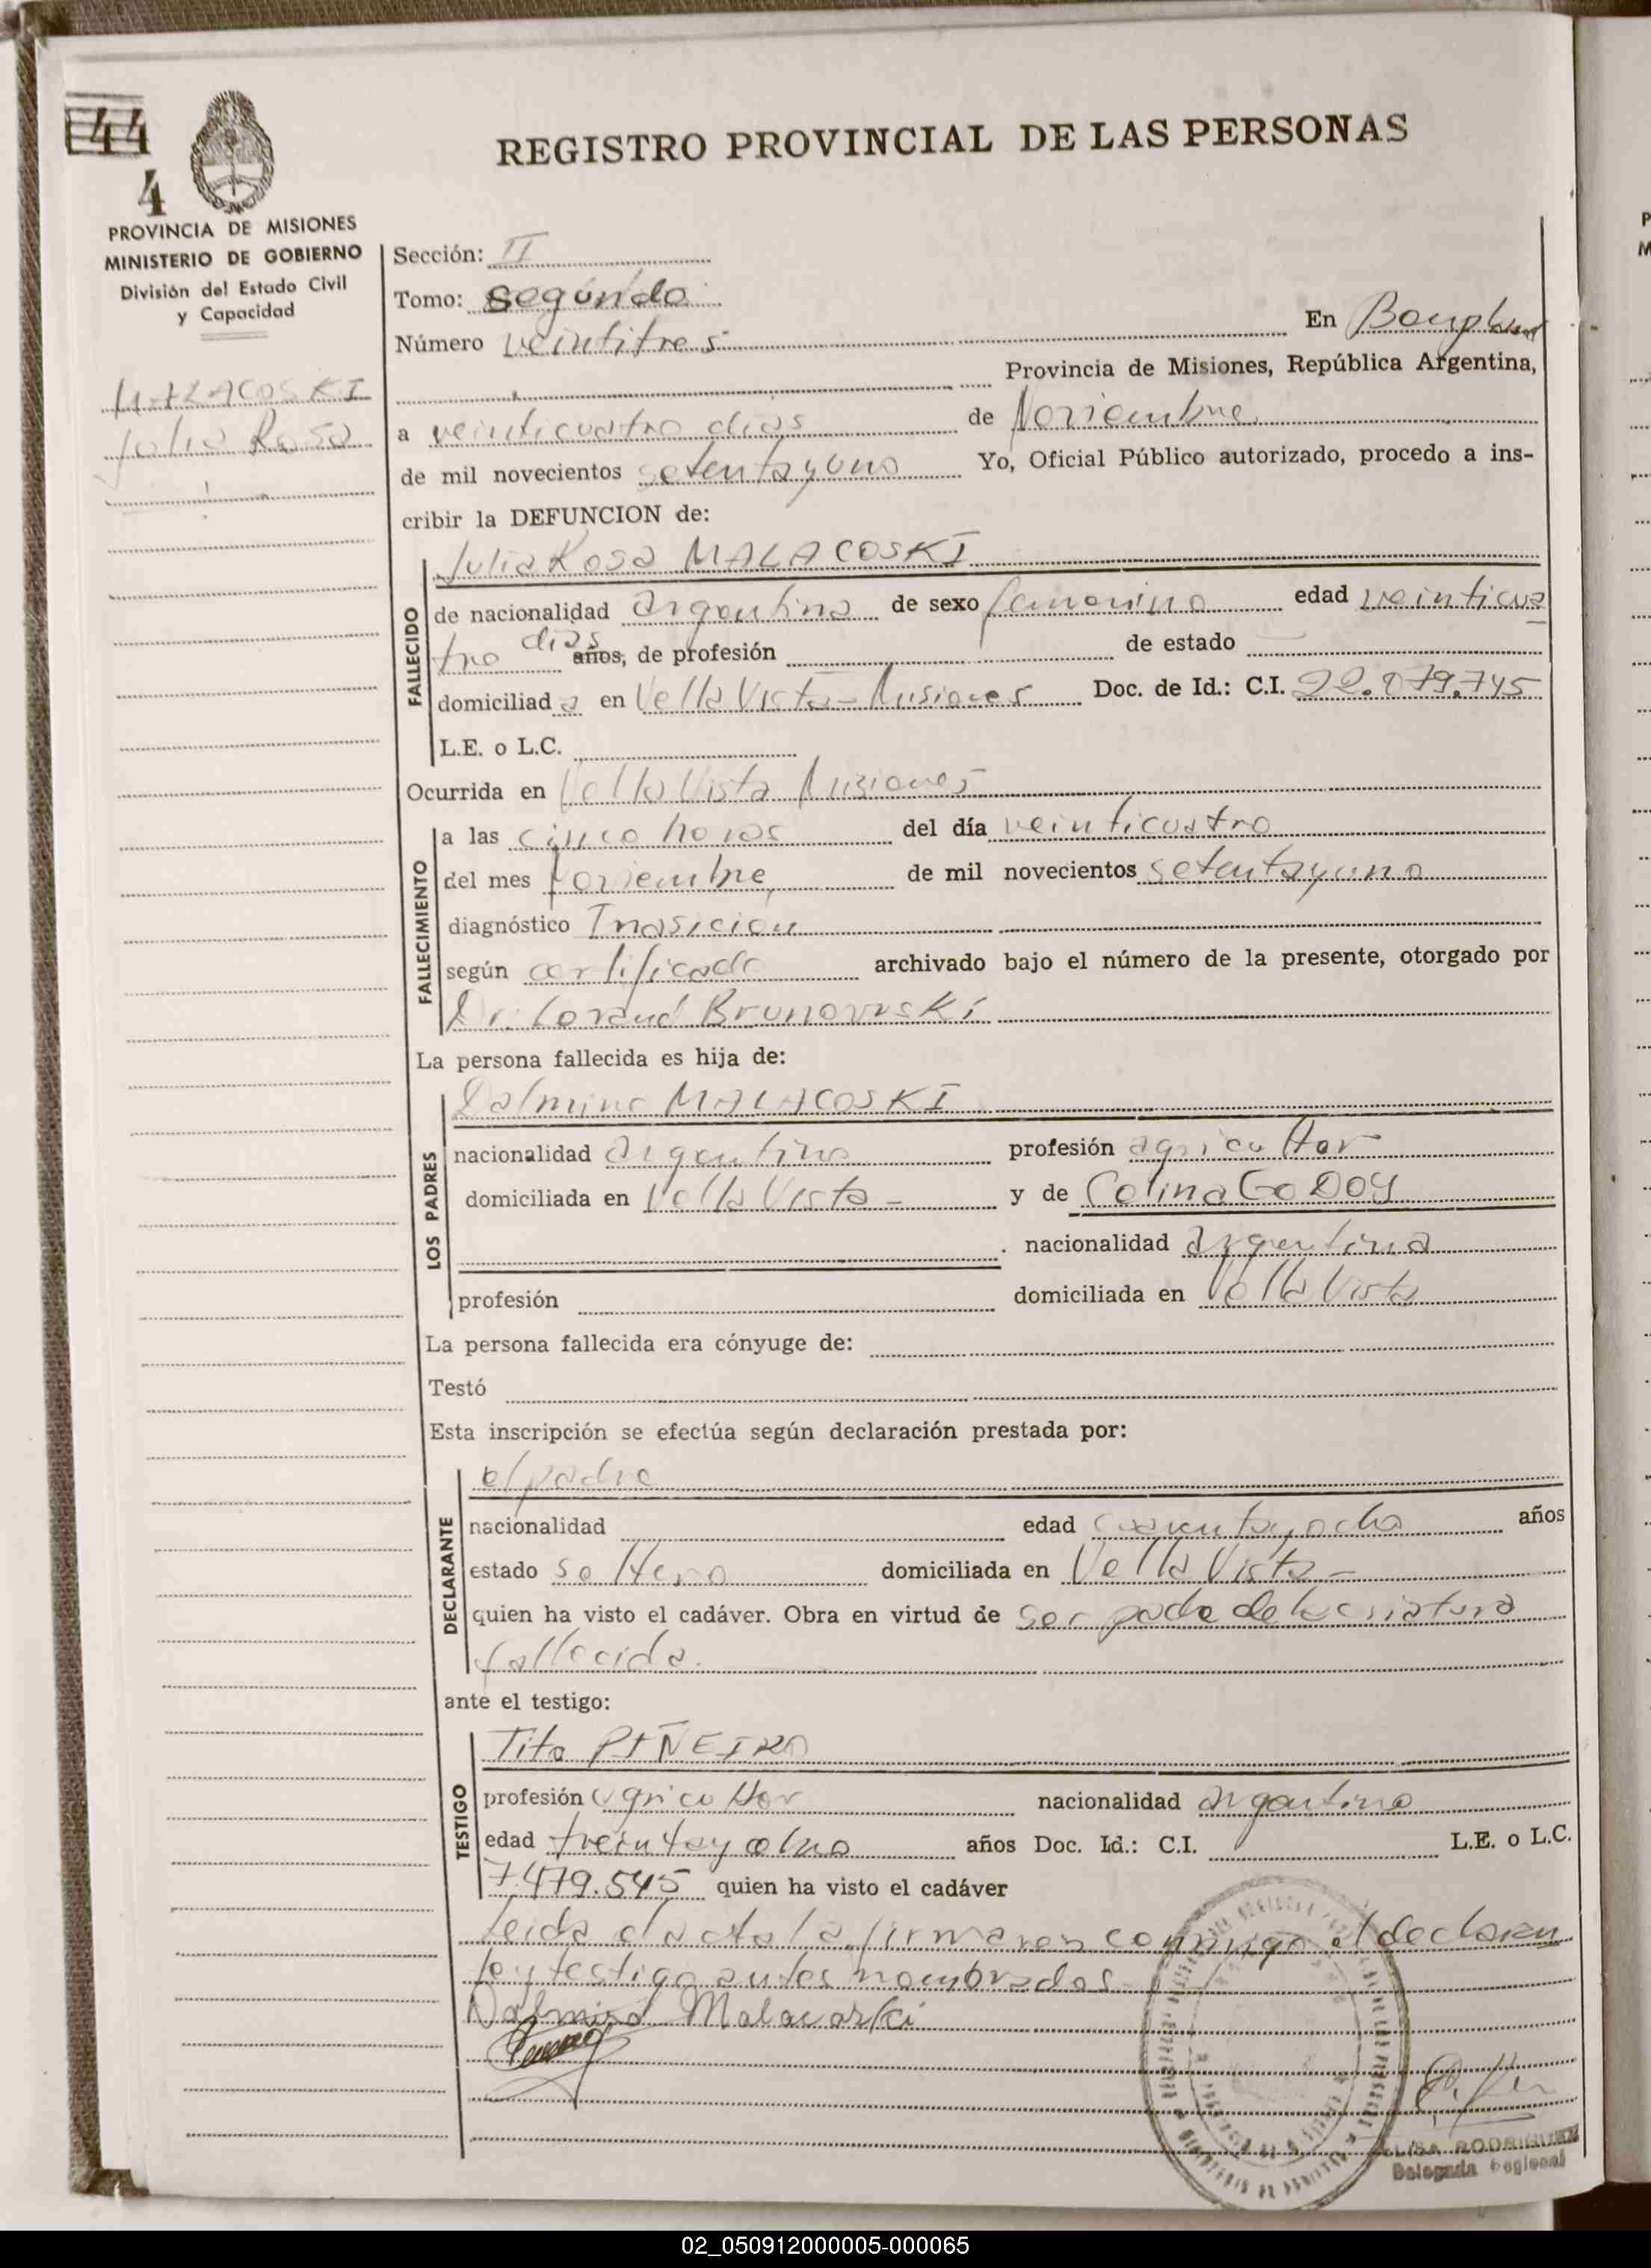 44
4
REGISTRO PROVINCIAL DE LAS PERSONAS
PROVINCIA DE MISIONES
MINISTERIO DE GOBIERNO
División del Estado Civil
y Capacidad
MALACOSKI
Julia Rosa
Sección: II
Tomo: segundo
Número veintitres
En Bonpland
Provincia de Misiones, República Argentina,
a veinticuatro dias de Noviembre
de mil novecientos setentayuno Yo, Oficial Público autorizado, procedo a ins-
cribir la DEFUNCION de:
Julia Rosa MALACOSKI
FALLECIDO
de nacionalidad argentina de sexo femenino edad veinticua
tro dias años, de profesión de estado
domiciliad a en Vella Vista - Misiones Doc. de Id.: C.I. 22.079.745
L.E. o L.C.
Ocurrida en Vella Vista Misiones
FALLECIMIENTO
a las cinco horas del día veinticuatro
del mes Noviembre, de mil novecientos setentayuno
diagnóstico
según certificado archivado bajo el número de la presente, otorgado por
Dr.
La persona fallecida es hija de:
LOS PADRES
Dalmiro MALACOSKI
nacionalidad argentino profesión agricultor
domiciliada en Vella Vista - y de Celina GODOY
nacionalidad argentina
profesión domiciliada en Vella Vista
La persona fallecida era cónyuge de:
Testó
Esta inscripción se efectúa según declaración prestada por:
DECLARANTE
el padre
nacionalidad edad cuarentayocho años
estado soltero domiciliada en Vella Vista -
quien ha visto el cadáver. Obra en virtud de ser padre de la criatura
fallecida.
ante el testigo:
TESTIGO
Tito PIÑEIRO
profesión agricultor nacionalidad argentino
edad años Doc. Id.: C.I. L.E. o L.C.
7.479.545 quien ha visto el cadáver
Leida el acta la firmaren conmigo el declaran
te y testigo antes nombrados
Dalmiro Malacoski
ELISA RODRIGUEZ
Delegada Regional
02_050912000005-000065